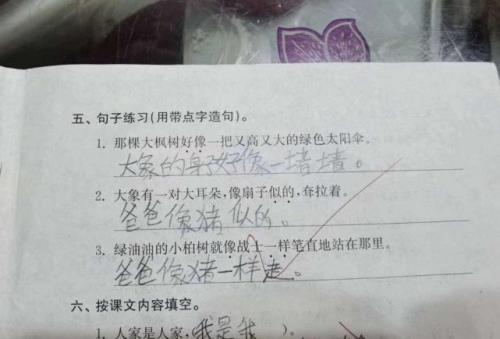 五、句子练习(用带点字造句)。
1. 那棵大枫树好像一把又高又大的绿色太阳伞。
大象的身好像一堵墙。
2. 大象有一对大耳朵,像扇子似的,耷拉着。
爸爸像猪似的。
3. 绿油油的小柏树就像战士一样笔直地站在那里。
爸爸像猪一样走。
六、按课文内容填空。
1. 人家是人家,(我是我)。